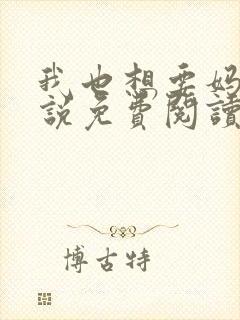 我也想要妈
說免費閱讀
博古特